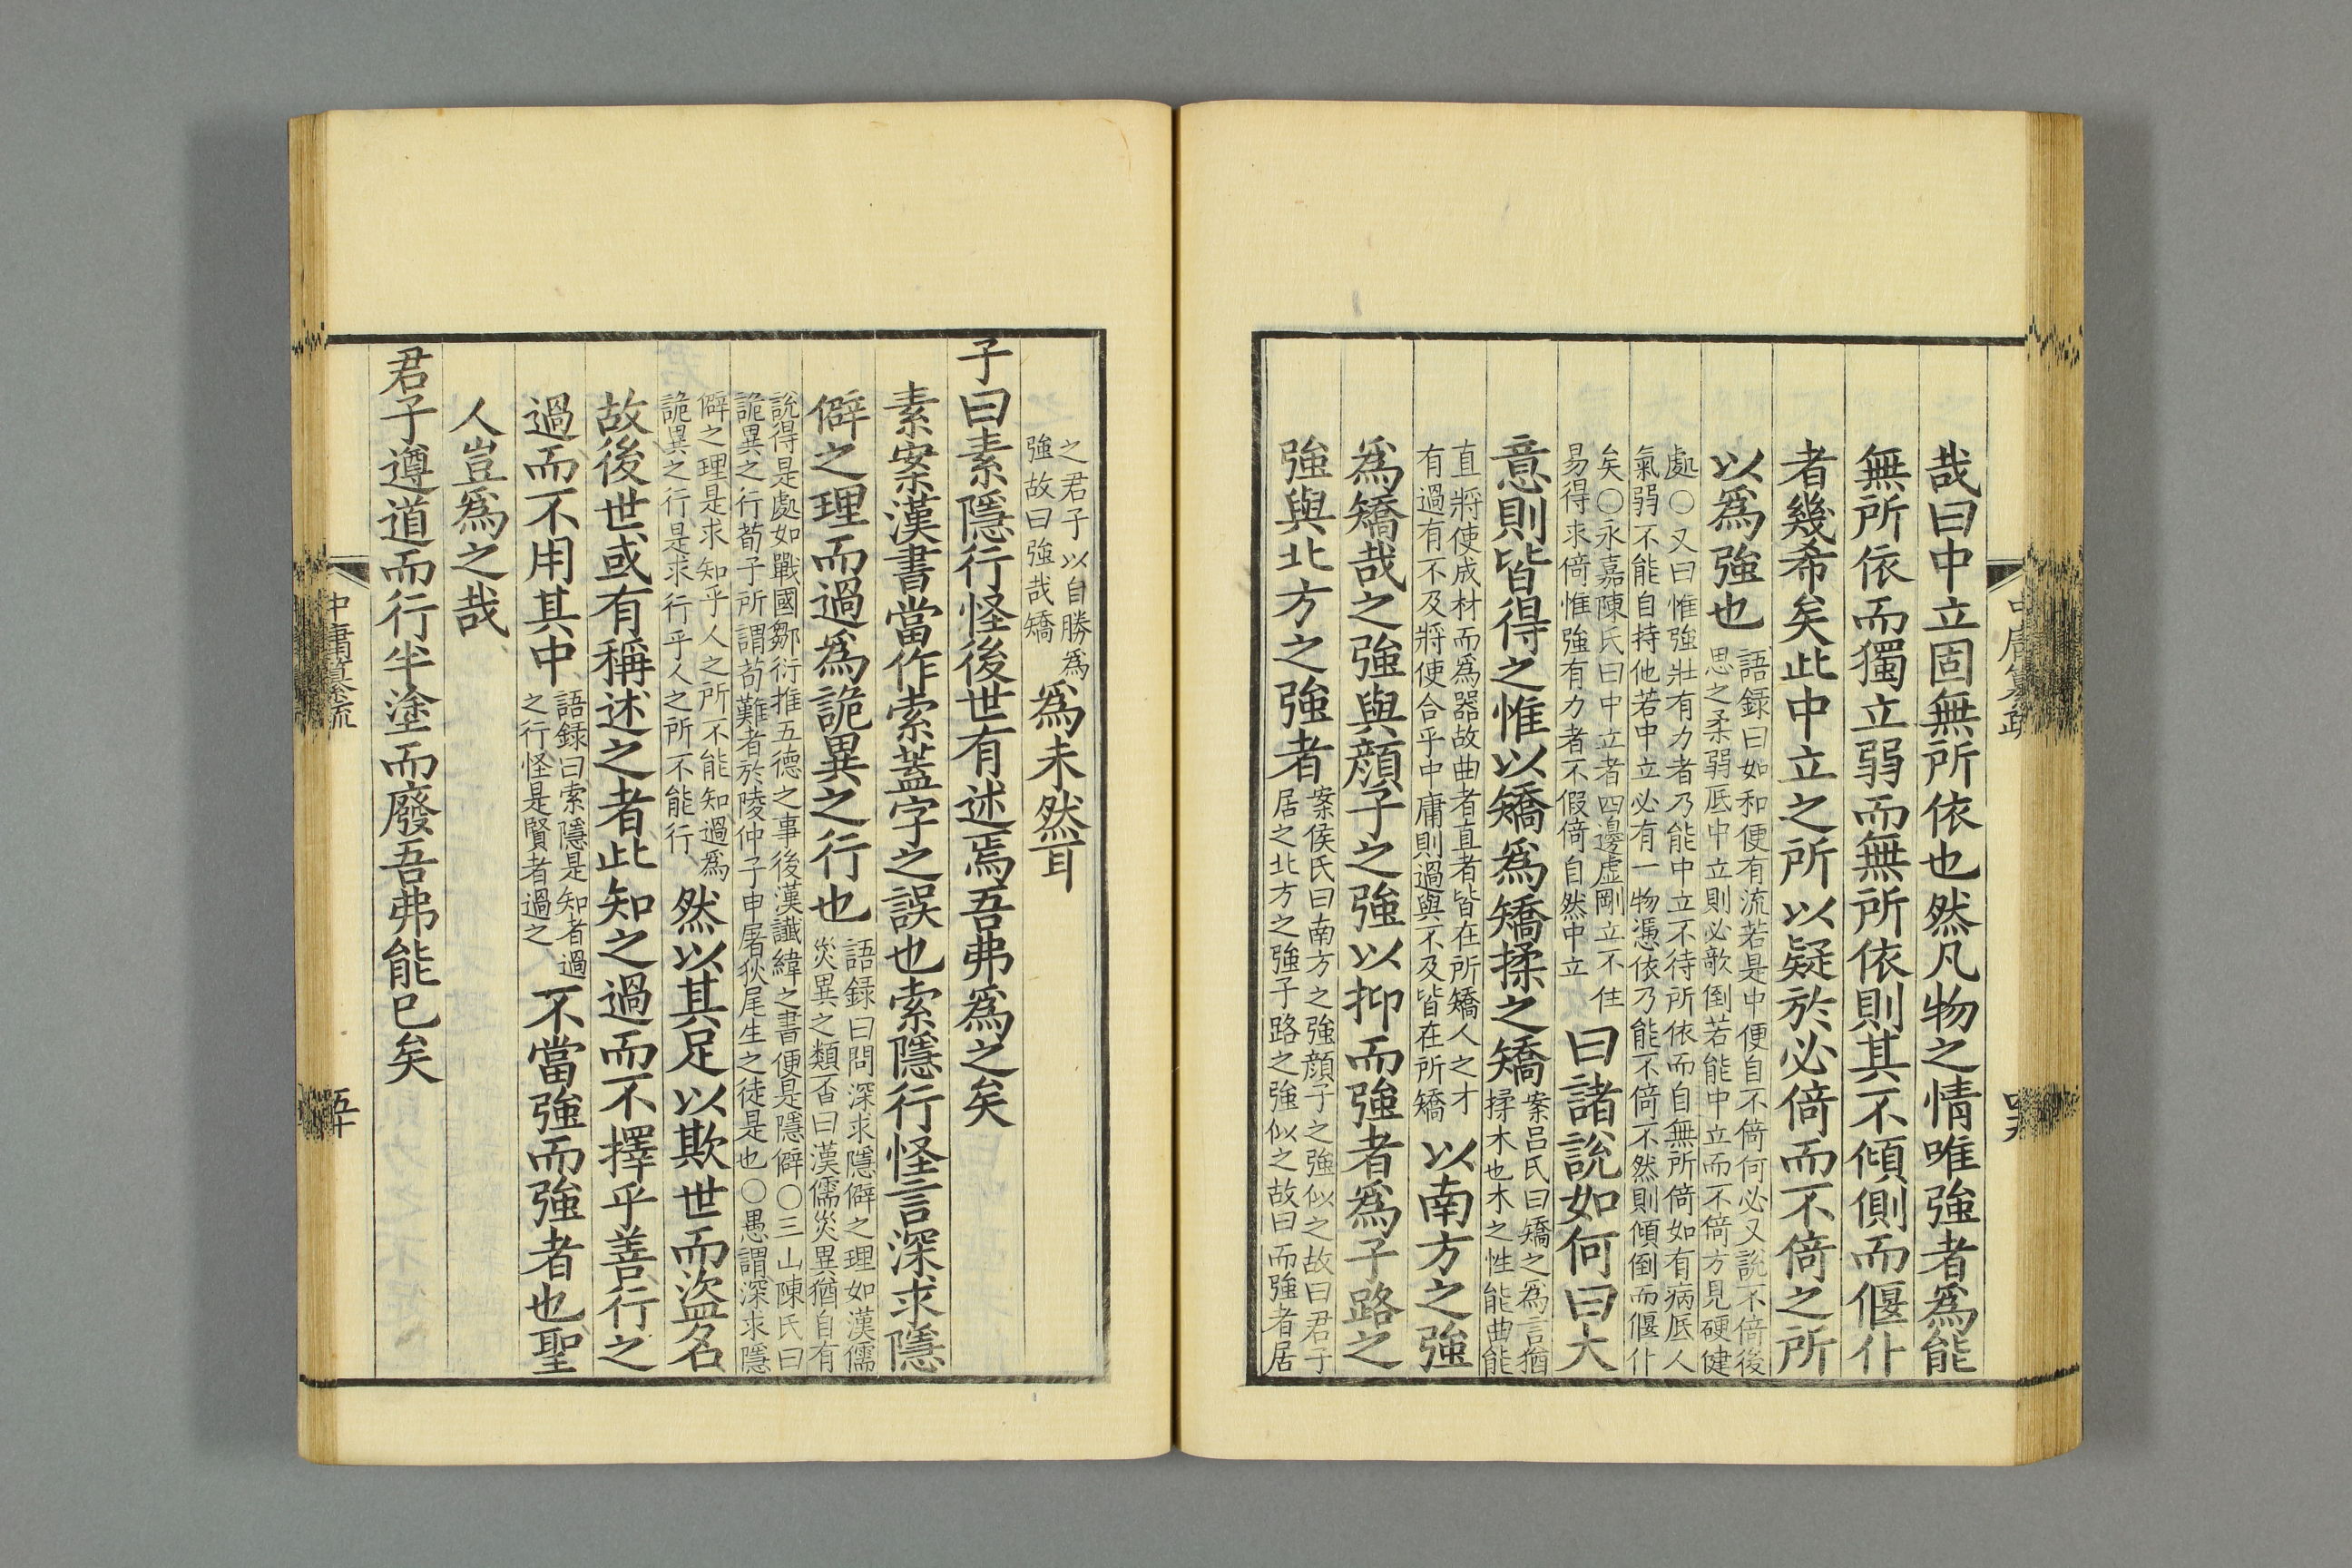 哉曰中立固無所依也然凡物之情唯強者爲能
無所依而獨立弱而無所依則其不傾側而偃仆
者幾希矣此中立之所以疑於必倚而不倚之所
以爲強也
語録曰如和便有流若是中便自不倚何必又說不倚後
思之柔弱底中立則必欹倒若能中立而不倚方見硬健
處〇又曰惟強壯有力者乃能中立不待所依而自無所倚如有病底人
氣弱不能自持他若中立必有一物憑依乃能不倚不然則傾倒而偃仆
矣〇永嘉陳氏曰中立者四邊虛剛立不住
易得求倚惟強有力者不假倚自然中立
曰諸說如何曰大
意則皆得之惟以矯爲矯揉之矯
案呂氏曰矯之爲言猶
揉木也木之性能曲能
直將使成材而爲器故曲者直者皆在所矯人之才
有過有不及將使合乎中庸則過與不及皆在所矯
以南方之強
爲矯哉之強與顔子之強以抑而強者爲子路之
強與北方之強者
案侯氏曰南方之強顔子之強似之故曰君子
居之北方之強子路之強似之故曰而強者居
中庸纂疏
之君子以自勝爲
強故曰強哉矯
爲未然耳
子曰素隱行怪後世有述焉吾弗爲之矣
素案漢書當作索蓋字之誤也索隱行怪言深求隱
僻之理而過爲詭異之行也
語録曰問深求隱僻之理如漢儒
災異之類否曰漢儒災異猶自有
說得是處如戰國鄒衍推五德之事後漢讖緯之書便是隱僻〇三山陳氏曰
詭異之行荀子所謂苟難者於陵仲子申屠狄尾生之徒是也〇愚謂深求隱
僻之理是求知乎人之所不能知過爲
詭異之行是求行乎人之所不能行
然以其足以欺世而盜名
故後世或有稱述之者此知之過而不擇乎善行之
過而不用其中
語録曰索隱是知者過
之行怪是賢者過之
不當強而強者也聖
人豈爲之哉
君子遵道而行半塗而廢吾弗能已矣
中庸纂疏
五十